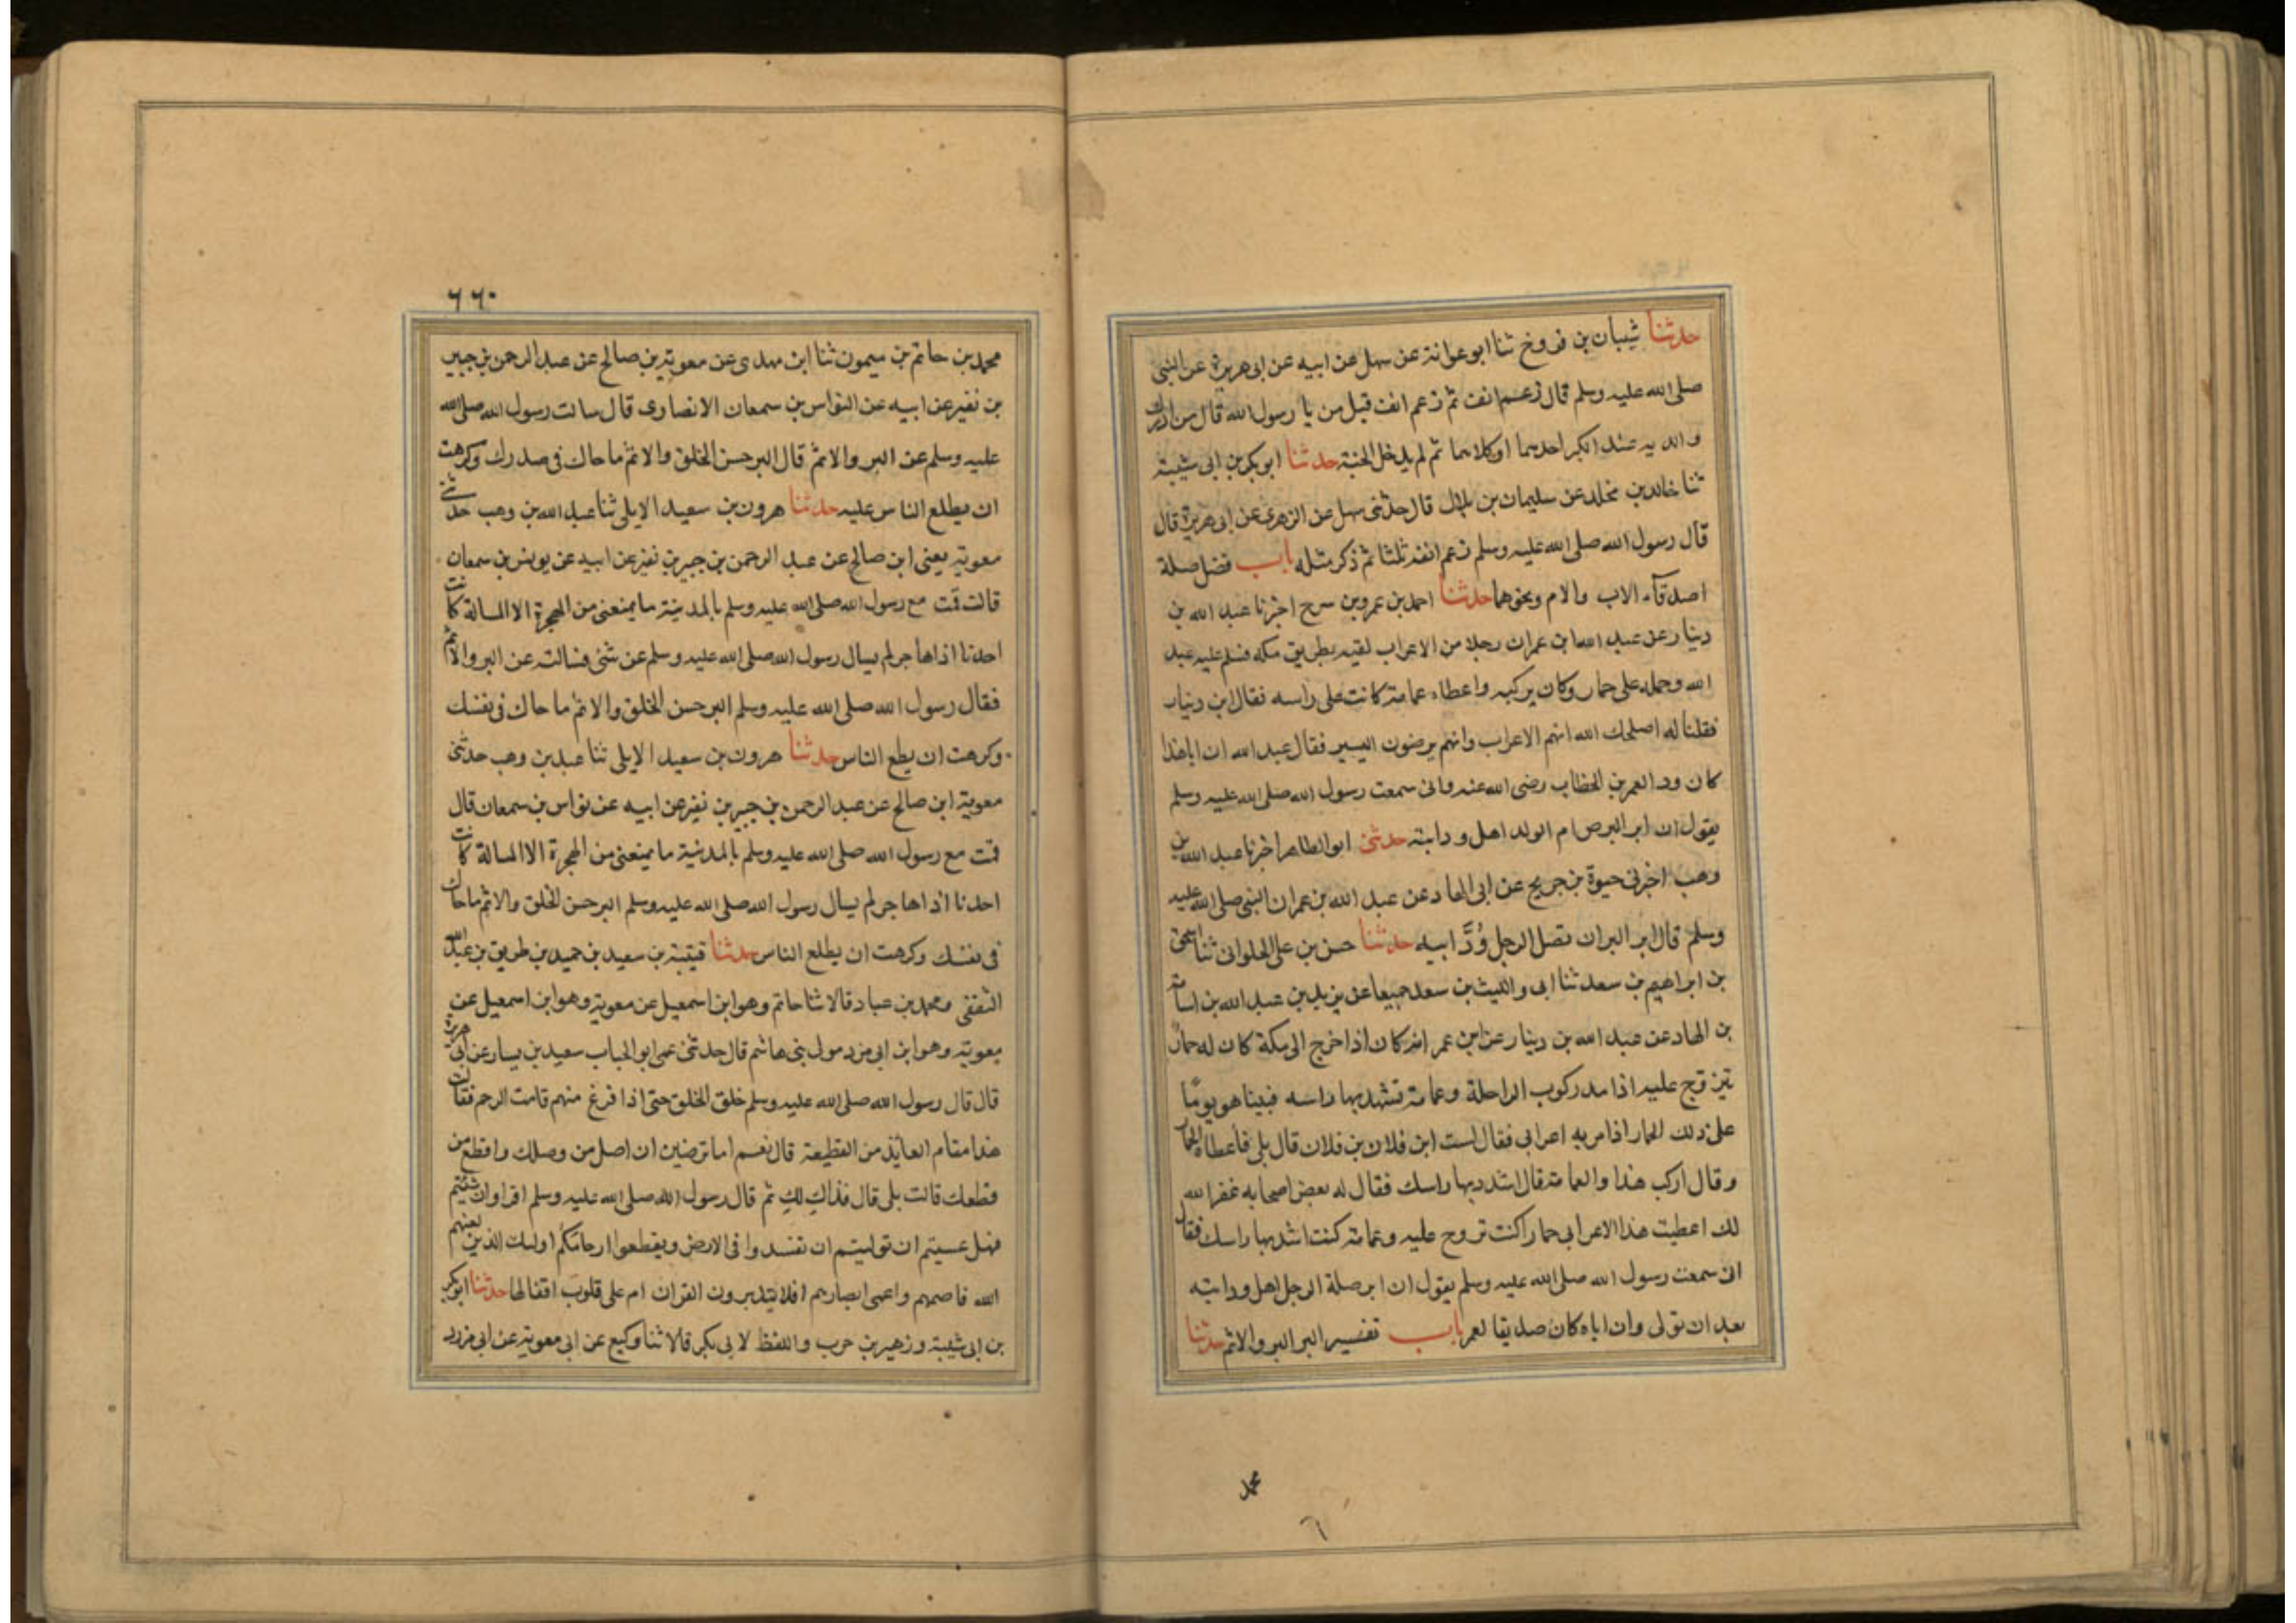 حدثنا شيبان بن فروخ ثنا ابو عوانة عن سهل عن ابيه عن ابى هريرة عن النبى
صلى الله عليه وسلم قال زعم انف ثم زعم انف قيل من يا رسول الله قال من ادرك
والديه عند الكبر احدهما اوكلاهما ثم لم يدخل الجنة حدثنا ابو بكر بن ابى شيبة
ثنا خالد بن مخلد عن سليمان بن بلال قال حدثنى سهل عن الزهرى عن ابى هريرة قال
قال رسول الله صلى الله عليه وسلم زعم انفه ثلثا ثم ذكر مثله باب فضل صلة
اصدقآء الاب والام ونحوهما حدثنا احمد بن عمرو بن سرح اخبرنا عبد الله بن
دينار عن عبد الله ابن عمر ان رجلا من الاعراب لقيه بطريق مكه فسلم عليه عبد
الله وحمله على حمار وكان يركبه واعطاه عمامة كانت على راسه فقال ابن دينار
فقلنا له اصلحك الله انهم الاعراب وانهم يرضون اليسير فقال عبد الله ان اباهذا
كان ودا لعمر بن الخطاب رضى الله عنه وانى سمعت رسول الله صلى الله عليه وسلم
يقول ان ابر البر ص ام الولد اهل ود ابيه حدثنى ابو الطاهر اخبرنا عبد الله بن
وهب اخبرنى حيوة بن جريح عن ابى الهاد عن عبد الله بن عمر ان النبى صلى الله عليه
وسلم قال ابر البر ان تصل الرجل وُدَّ ابيه حدثنا حسن بن على الحلوانى ثنا يعقوب
بن ابراهيم بن سعد ثنا ابى والليث بن سعد جميعا عن يزيد بن عبد الله بن اسامة
بن الهاد عن عبد الله بن دينار عن ابن عمر انه كان اذا خرج الى مكة كان له حمارٌ
يتزوج عليه اذا مد ركوب الراحلة وعمامة تشد بها راسه فبينا هو يومًا
على ذلك الحمار اذا مر به اعرابى فقال لست ابن فلان بن فلان قال بلى فاعطاه الحمار
وقال اركب هذا والعمامة قال اشدد بها راسك فقال له بعض اصحابه غفر الله
لك اعطيت هذا الاعرابى حمارا كنت تروح عليه وعمامة كنت اشد بها راسك فقال
انى سمعت رسول الله صلى الله عليه وسلم يقول ان ابر صلة الرجل اهل ود ابيه
بعد ان تولى وان اباه كان صديقا لعمر باب تفسير البر البر والاثم حدثنا
محمد
٦٦٠
محمد بن حاتم بن سيمون ثنا ابن مهدى عن معوية بن صالح عن عبد الرحمن بن جبير
بن نفير عن ابيه عن النواس بن سمعان الانصارى قال سالت رسول الله صلى الله
عليه وسلم عن البر والاثم قال البر حسن الخلق والاثم ما حاك فى صدرك وكرهت
ان يطلع الناس عليه حدثنا هرون بن سعيد الايلى ثنا عبد الله بن وهب حدثنى
معوية يعنى ابن صالح عن عبد الرحمن بن جبير بن نفير عن ابيه عن يونس بن سمعان
قالت قمت مع رسول الله صلى الله عليه وسلم بالمدينة ما يمنعنى من الهجرة الا المسالة كانت
احدنا اذا هاجر لم يسال رسول الله صلى الله عليه وسلم عن شئى فسالته عن البر والاثم
فقال رسول الله صلى الله عليه وسلم البر حسن الخلق والاثم ما حاك فى نفسك
وكرهت ان يطلع الناس حدثنا هرون بن سعيد الايلى ثنا عبد بن وهب حدثنى
معوية ابن صالح عن عبد الرحمن بن جبير بن نفير عن ابيه عن نواس بن سمعان قال
قمت مع رسول الله صلى الله عليه وسلم بالمدينة ما يمنعنى من الهجرة الا المسالة كانت
احدنا اذا هاجر لم يسال رسول الله صلى الله عليه وسلم البر حسن الخلق والاثم ما حاك
فى نفسك وكرهت ان يطلع الناس حدثنا قتيبة بن سعيد بن حميد بن طريق بن عبد الله
الثقفى ومحمد بن عباد قالا ثنا حاتم وهو ابن اسمعيل عن معوية وهو ابن اسمعيل عن
معوية وهو ابن ابى مزرد مولى بنى هاشم قال حدثنى عمى ابو الحباب سعيد بن يسار عن ابى هريرة
قال قال رسول الله صلى الله عليه وسلم خلق الخلق حتى اذا فرغ منهم قامت الرحم فقالت
هذا مقام العائذ من القطيعة قال نعم اما ترضين ان اصل من وصلك واقطع من
قطعك قالت بلى قال فذاك لك ثم قال رسول الله صلى الله عليه وسلم اقراوا ان شئتم
فهل عسيتم ان توليتم ان تفسدوا فى الارض ويقطعوا ارحامكم اوليك الذين لعنهم
الله فاصمهم واعمى ابصارهم افلا يتدبرون القران ام على قلوب اقفالها حدثنا ابو بكر
بن ابى شيبة وزهير بن حرب واللفظ لابى بكر قالا ثنا وكيع عن ابى معوية عن ابى مزرد